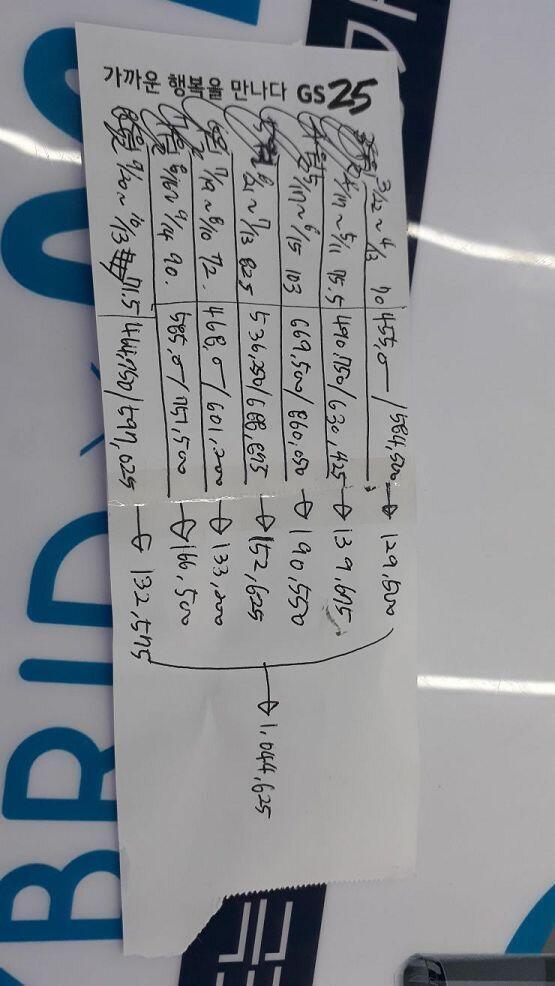 가까운 행복을 만나다 GS25
3/12~4/13 70 455,0 / 584,500 → 129,500
4/17~5/11 75.5 490,750/630,425 → 139,675
5/17~6/15 103 669,500/860,050 → 190,550
6/21~7/13 82.5 536,250/688,875 → 152,625
7/19~8/10 72. 468,0 / 601,200 → 133,200
8/16~9/14 90. 585,0 / 751,500 → 166,500
9/20~10/13 71.5 464,750/597,025 → 132,275
→ 1,044,625
BRID